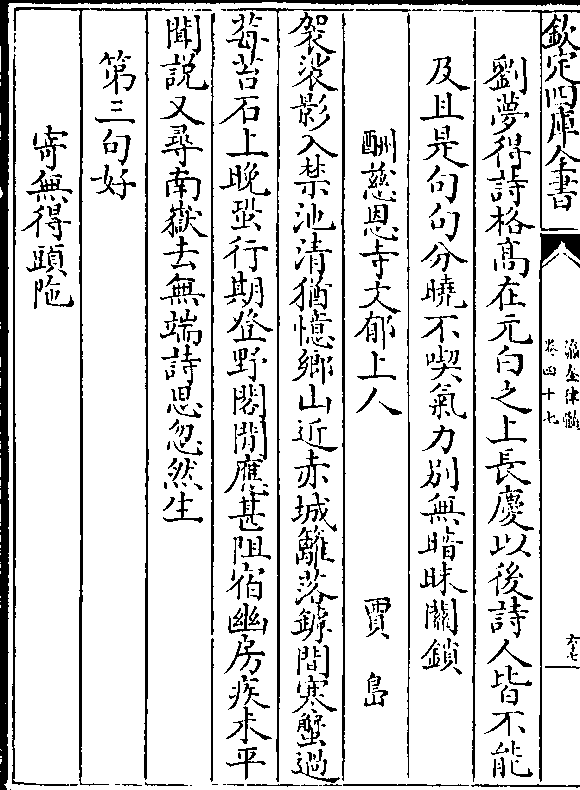 欽定四庫全書
瀛奎律髓
卷四十七
劉夢得詩格髙在元白之上長慶以後詩人皆不能
及且是句句分曉不喫氣力别無暗昧關鎻
酬慈恩寺文郁上人 賈島
袈裟影入禁池清猶憶鄉山近赤城籬落罅間寒蟹過
莓苔石上晚蛩行期登野閣閒應甚阻宿幽房疾未平
聞說又尋南嶽去無端詩思忽然生
第三句好
寄無得頭陁